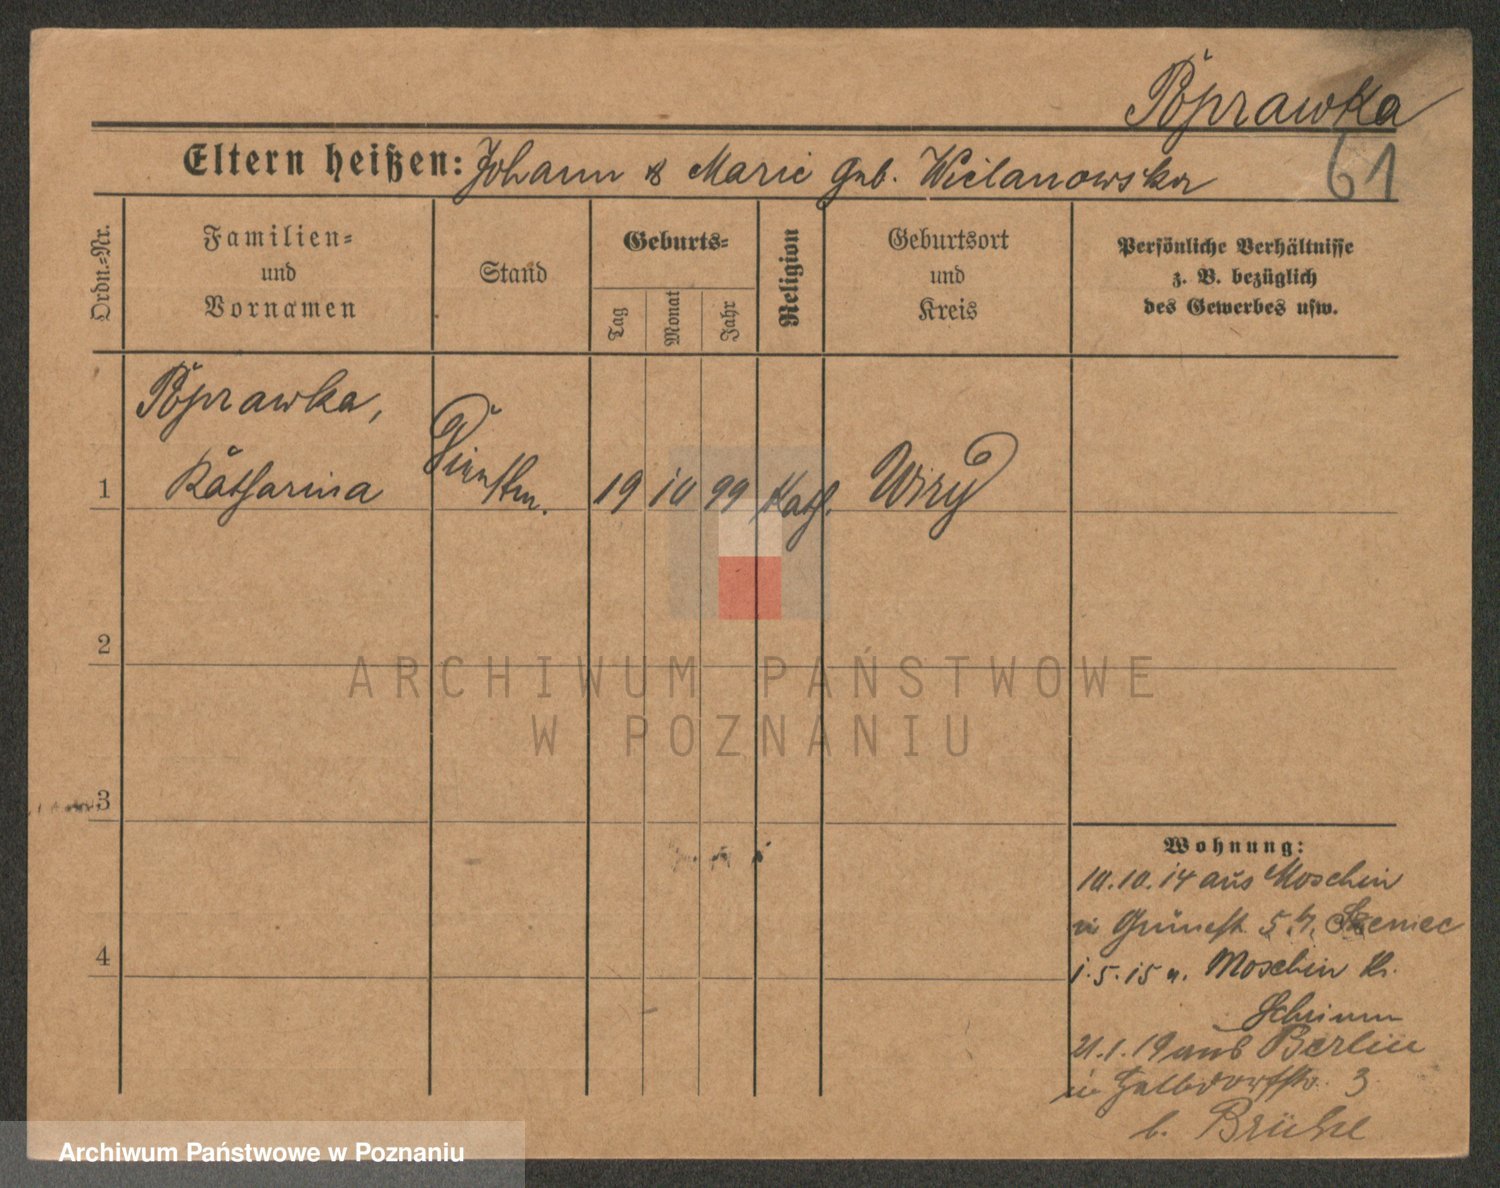 Poprawka
61
Eltern heißen: Johann & Marie geb. Wielanowska
Ordn.-Nr.
Familien-
und
Vornamen
Stand
Geburts-
Tag
Monat
Jahr
Religion
Geburtsort
und
Kreis
Persönliche Verhältnisse
z. B. bezüglich
des Gewerbes usw.
1
Poprawka,
Katharina
Dienstm.
19
10
99
Kath.
Wiry
2
3
4
Wohnung:
10.10.14 aus Moschin
in 5 b.
1.5.15 n. Moschin Kr.
Schrimm
21.1.19 aus Berlin
in Halbdorfstr. 3
b. Brühe
ARCHIWUM PAŃSTWOWE
W POZNANIU
Archiwum Państwowe w Poznaniu